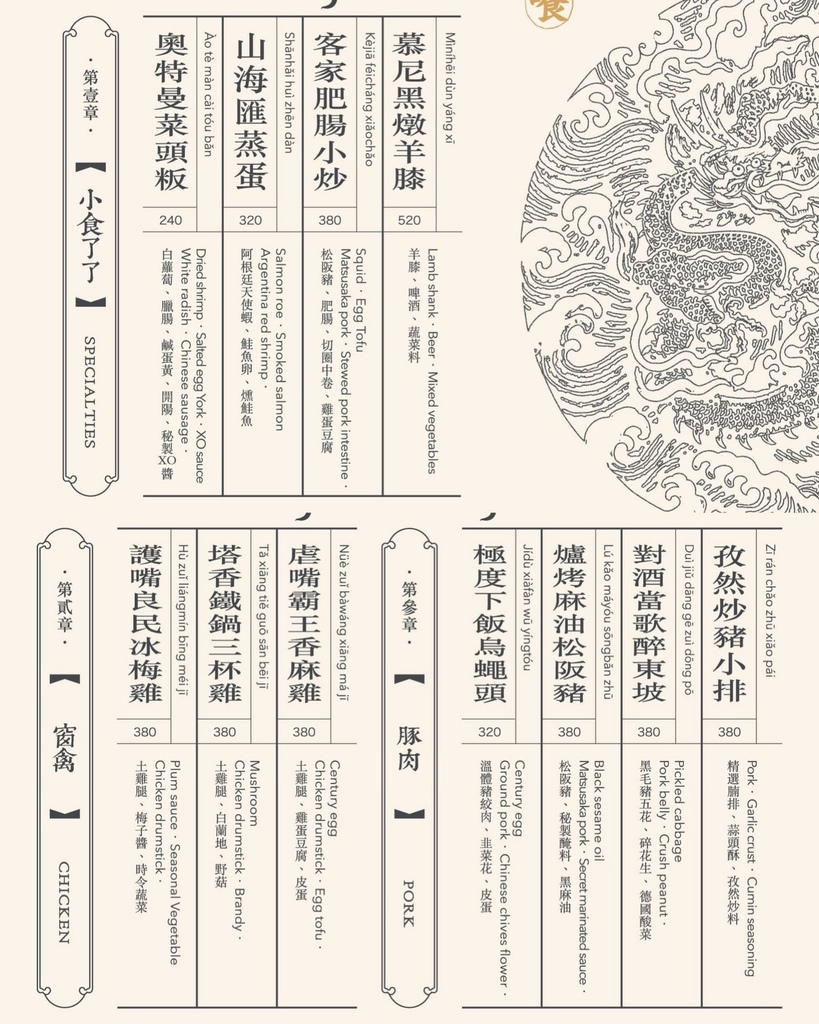 食
·第壹章·
【小食了了】
SPECIALTIES
慕尼黑燉羊膝
Mìníhēi dùn yáng xī
520
Lamb shank · Beer · Mixed vegetables
羊膝、啤酒、蔬菜料
客家肥腸小炒
Kèjiā féicháng xiǎochǎo
380
Squid · Egg Tofu
Matsusaka pork · Stewed pork intestine ·
松阪豬、肥腸、切圈中卷、雞蛋豆腐
山海匯蒸蛋
Shānhǎi huì zhēn dàn
320
Salmon roe · Smoked salmon
Argentina red shrimp ·
阿根廷天使蝦、鮭魚卵、燻鮭魚
奧特曼菜頭粄
Ào tè màn cài tóu bǎn
240
Dried shrimp · Salted egg York · XO sauce
White radish · Chinese sausage ·
白蘿蔔、臘腸、鹹蛋黃、開陽、秘製XO醬
·第貳章·
【窗禽】
CHICKEN
虐嘴霸王香麻雞
Nüè zuǐ bàwáng xiāng má jī
380
Century egg
Chicken drumstick · Egg tofu ·
土雞腿、雞蛋豆腐、皮蛋
塔香鐵鍋三杯雞
Tǎ xiāng tiě guō sān bēi jī
380
Mushroom
Chicken drumstick · Brandy ·
土雞腿、白蘭地、野菇
護嘴良民冰梅雞
Hù zuǐ liángmín bīng méi jī
380
Plum sauce · Seasonal Vegetable
Chicken drumstick ·
土雞腿、梅子醬、時令蔬菜
·第參章·
【豚肉】
PORK
孜然炒豬小排
Zī rán chǎo zhū xiǎo pái
380
Pork · Garlic crust · Cumin seasoning
精選腩排、蒜頭酥、孜然炒料
對酒當歌醉東坡
Duì jiǔ dāng gē zuì dōng pō
380
Pickled cabbage
Pork belly · Crush peanut ·
黑毛豬五花、碎花生、德國酸菜
爐烤麻油松阪豬
Lú kǎo máyóu sōngbǎn zhū
380
Black sesame oil
Matsusaka pork · Secret marinated sauce ·
松阪豬、秘製醃料、黑麻油
極度下飯烏蠅頭
Jídù xiàfàn wū yíngtóu
320
Century egg
Ground pork · Chinese chives flower ·
溫體豬絞肉、韭菜花、皮蛋